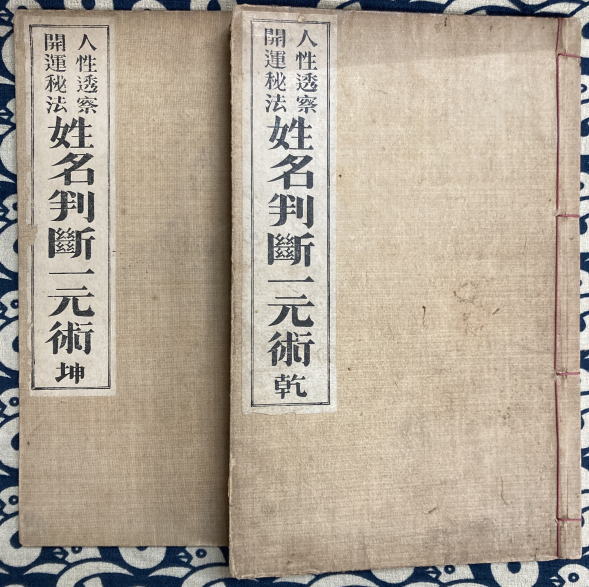 人性透察
開運秘法
姓名判斷一元術 乾
人性透察
開運秘法
姓名判斷一元術 坤